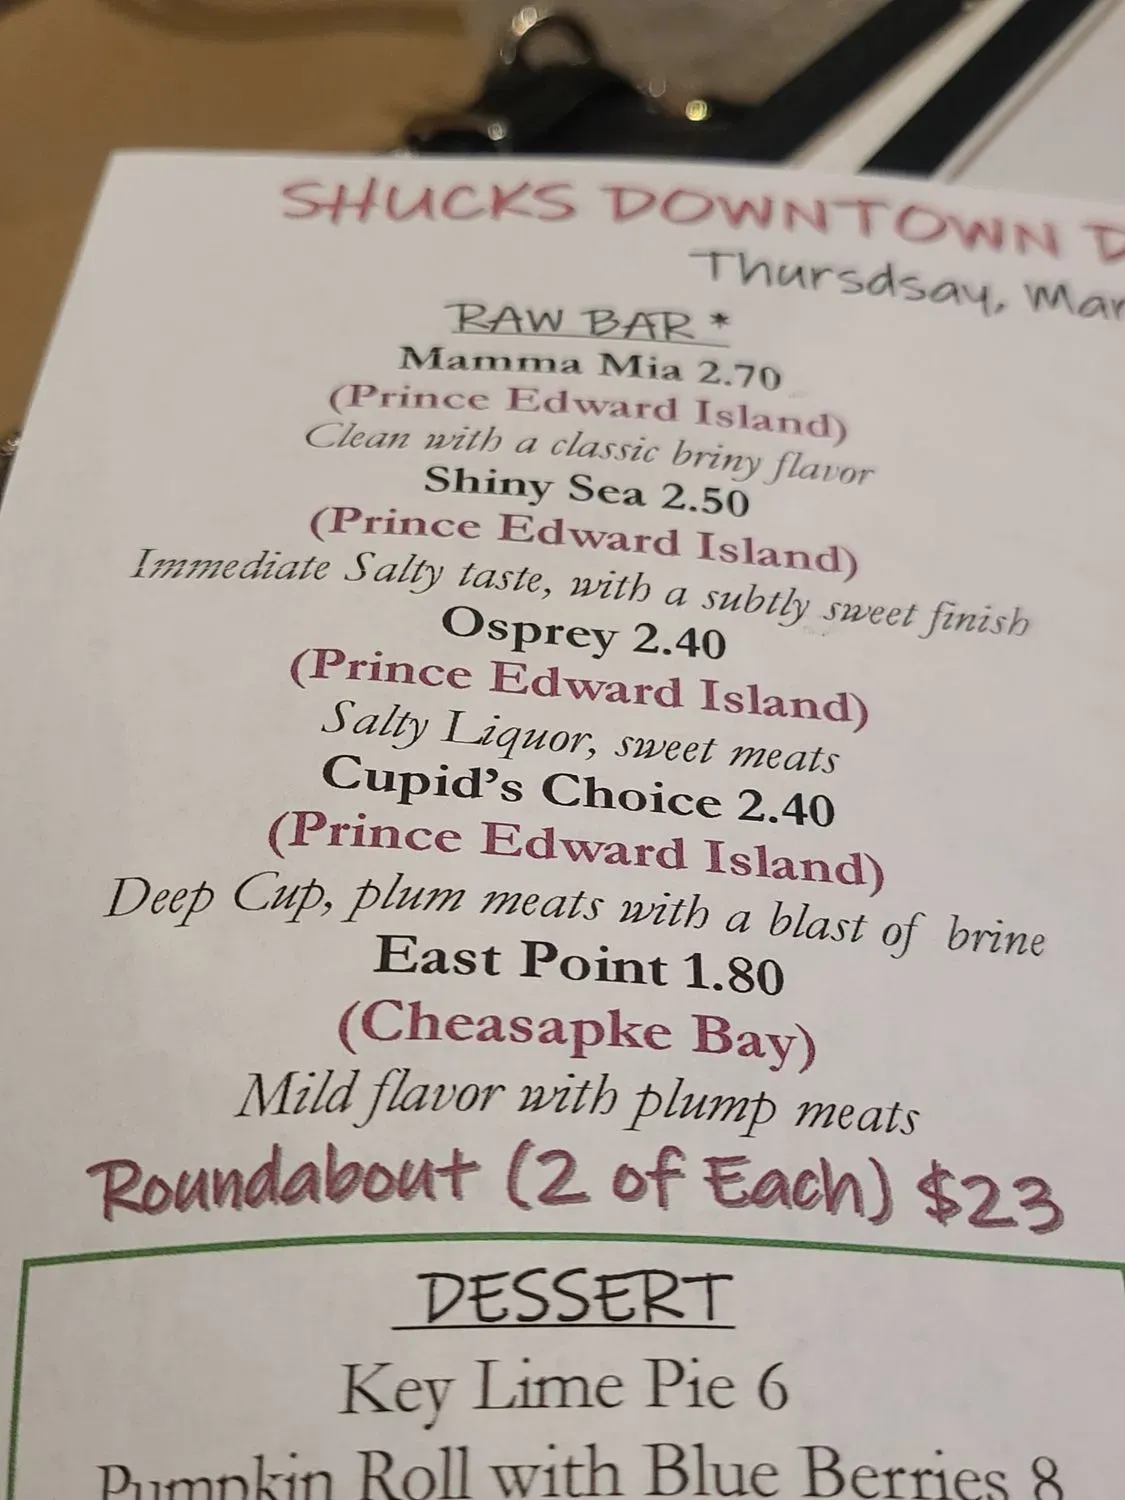 SHUCKS DOWNTOWN
Thursdsay, Mar
RAW BAR *
Mamma Mia 2.70
(Prince Edward Island)
Clean with a classic briny flavor
Shiny Sea 2.50
(Prince Edward Island)
Immediate Salty taste, with a subtly sweet finish
Osprey 2.40
(Prince Edward Island)
Salty Liquor, sweet meats
Cupid's Choice 2.40
(Prince Edward Island)
Deep Cup, plum meats with a blast of brine
East Point 1.80
(Cheasapke Bay)
Mild flavor with plump meats
Roundabout (2 of Each) $23
DESSERT
Key Lime Pie 6
Pumpkin Roll with Blue Berries 8